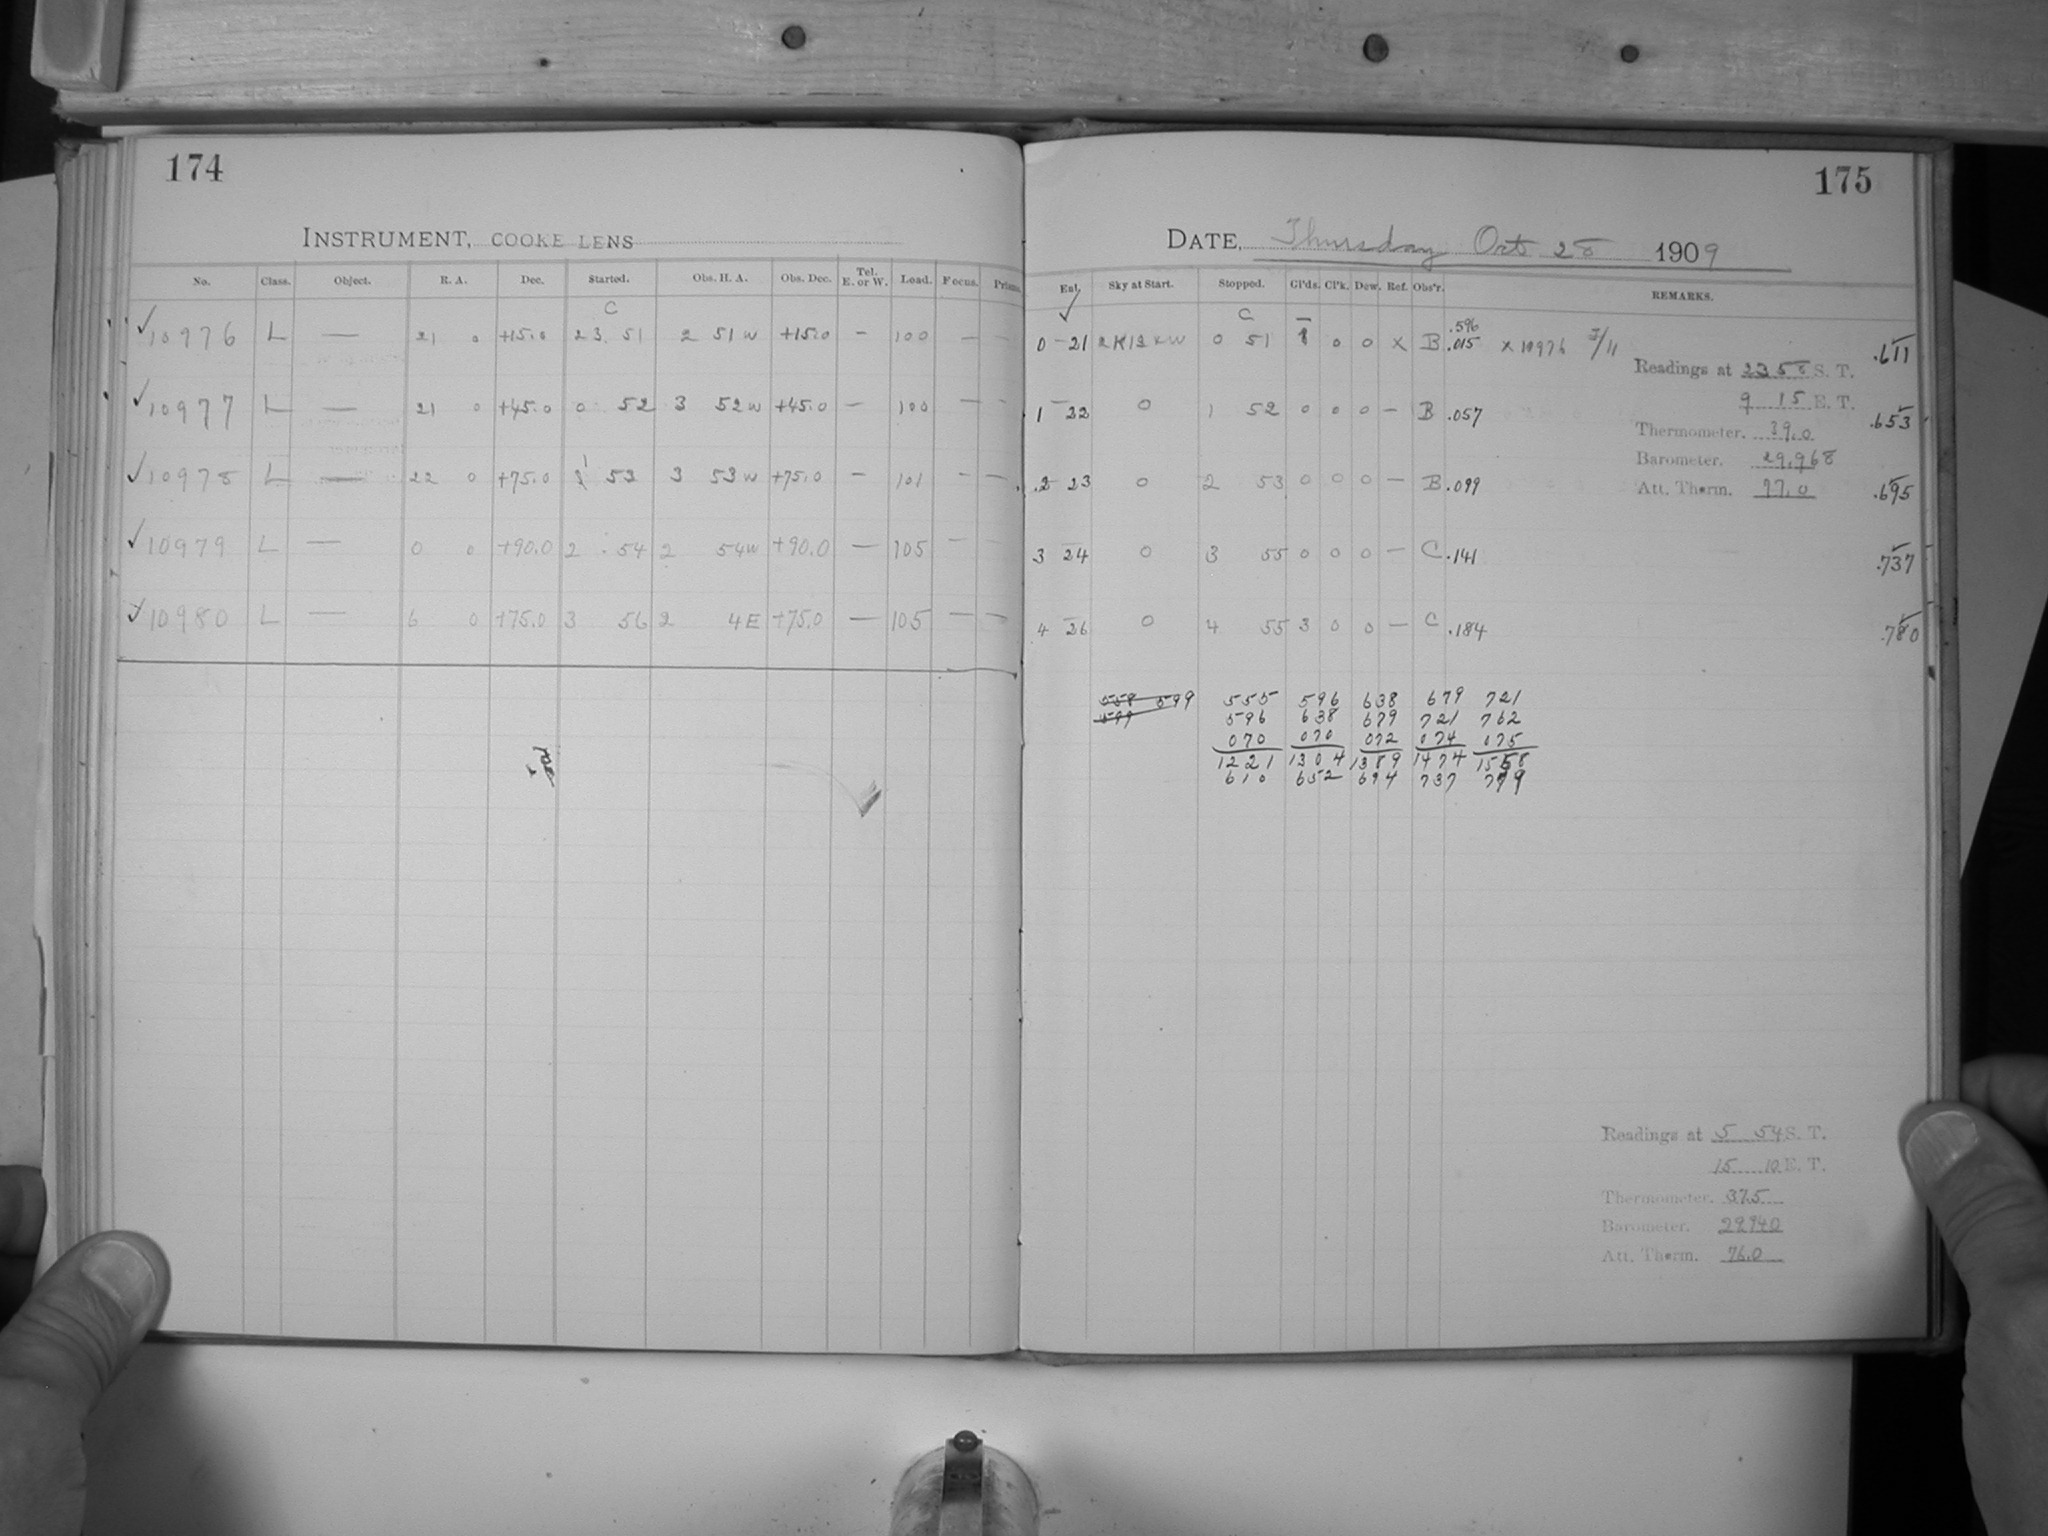 174
INSTRUMENT, COOKE LENS
No. Class. Object. R. A. Dec. Started. Obs. H. A. Obs. Dec. Tel. E. or W. Load. Focus. Prisms.
C
✓10976 L — 21 0 +15.0 23 51 2 51 W +15.0 – 100 — —
✓10977 L — 21 0 +45.0 0 52 3 52 W +45.0 – 100 — —
✓10978 L — 22 0 +75.0 1 53 3 53 W +75.0 – 101 – —
✓10979 L — 0 0 +90.0 2 54 2 54 W +90.0 — 105 – —
✓10980 L — 6 0 +75.0 3 56 2 4 E +75.0 — 105 — —
175
DATE, Thursday Oct 28 1909
Sky at Start. Stopped. Gl'ds. Cl'k. Dew. Ref. Obs'r. REMARKS.
✓ C
.596
0 21 2K12KW 0 51 1 0 0 x B .015 x 10976 .611
Readings at S. T.
9 15 E. T.
1 22 0 1 52 0 0 0 – B .057 .653
Thermometer. 39.0
Barometer. 29.968
2 23 0 2 53 0 0 0 – B .099 .695
Att. Therm. 77.0
3 24 0 3 55 0 0 0 – C .141 .737
4 26 0 4 55 3 0 0 – C .184 .780
558 599 555 596 638 679 721
599 596 638 679 721 762
070 070 072 074 075
1221 1304 1389 1474 1558
610 652 694 737 779
Readings at 5 54 S. T.
15 10 E. T.
Thermometer. 37.5
Barometer. 29.940
Att. Therm. 76.0